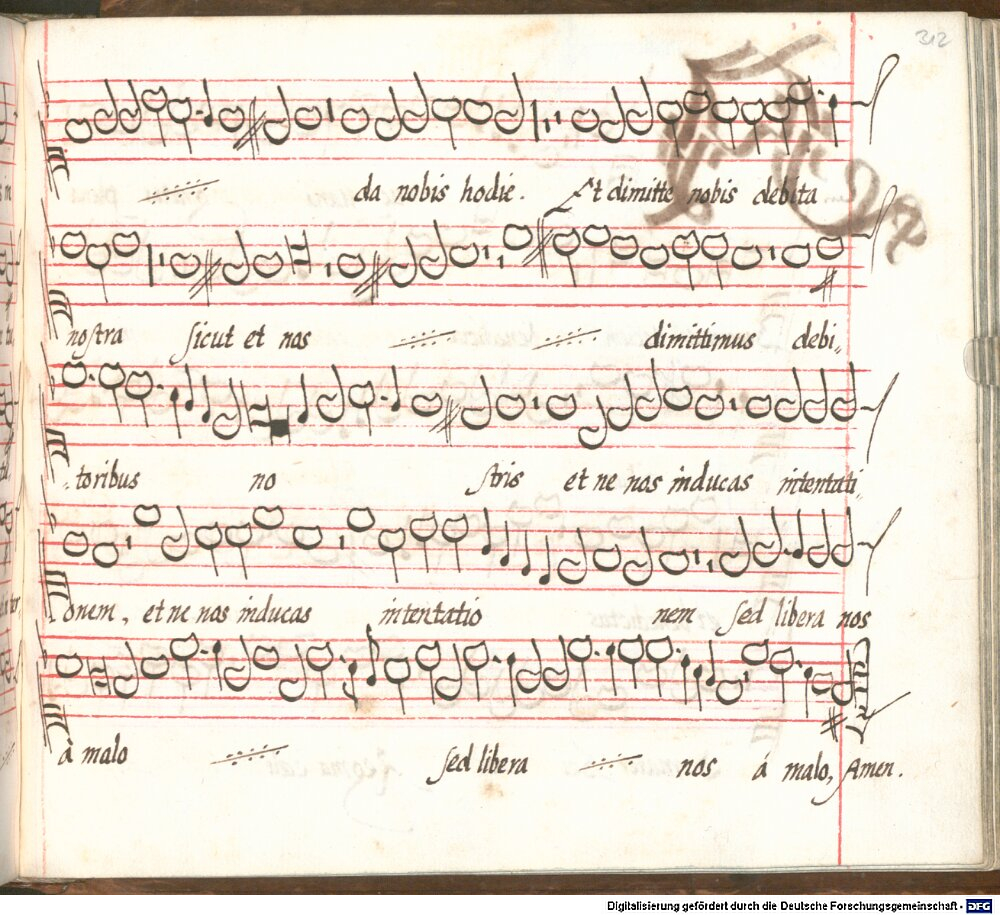 312
da nobis hodie. Et dimitte nobis debita
nostra sicut et nos dimittimus debi„
„toribus no stris et ne nos inducas intentati„
onem, et ne nos inducas intentatio nem sed libera nos
à malo sed libera nos á malo, Amen.
Digitalisierung gefördert durch die Deutsche Forschungsgemeinschaft - DFG